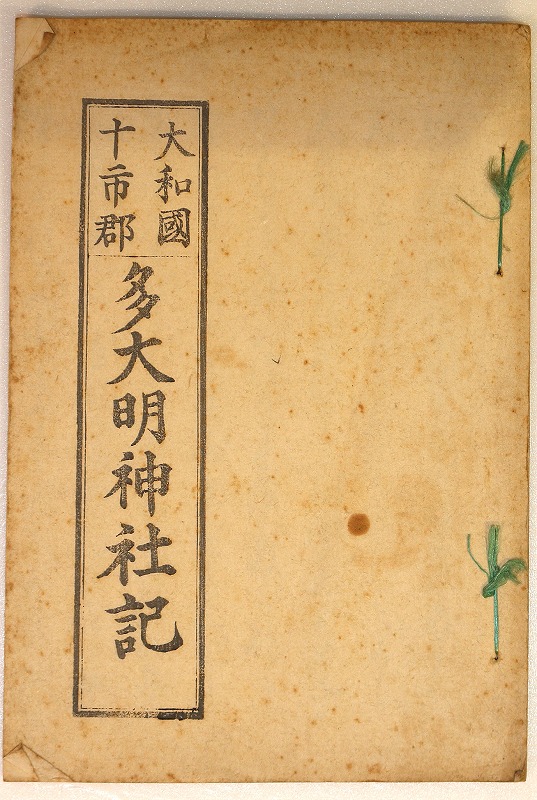 大和國
十市郡
多大明神社記